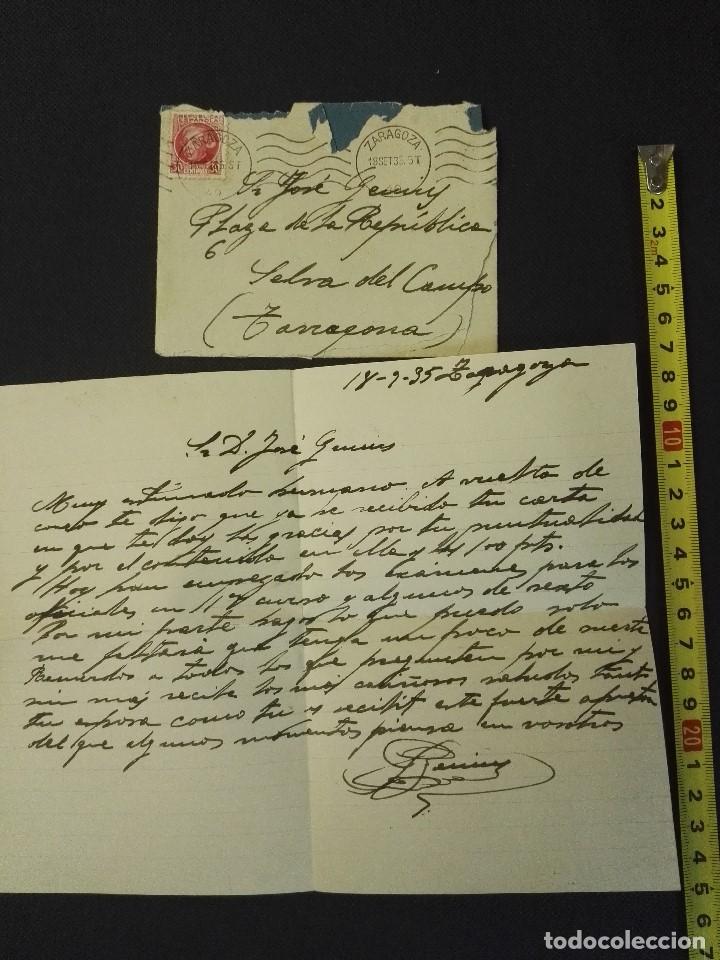 REPUBLICA
ESPAÑOLA
30 30
ZARAGOZA
ZARAGOZA
18SET35.5T
Sr José
Plaza de la República
6
Selva del Campo
(Tarragona)
18-9-35 Zaragoza
Sr D. José
Muy estimado hermano. A vuelta de
coreo te digo que ya se recibido tu carta
en que te doy las gracias por tu puntualidad
y por el contenido en ella y las 100 pts.
Hoy han empegado los exámenes para los
oficiales en 1er curso y algunos de sexto
Por mi parte hago lo que puedo solo
me faltara que tenga un poco de suerte
Recuerdos a todos los que pregunten por mi y
sin mas recibe los mas cariñosos saludos tanto
tu esposa como tu y recibir este fuerte
del que algunos momentos piensa en vosotros
2m
2 3 4 5 6 7 8 9 10 1 2 3 4 5 6 7 8 9 20 1 2 3 4 5 6 7
todocoleccion
todocoleccion.net